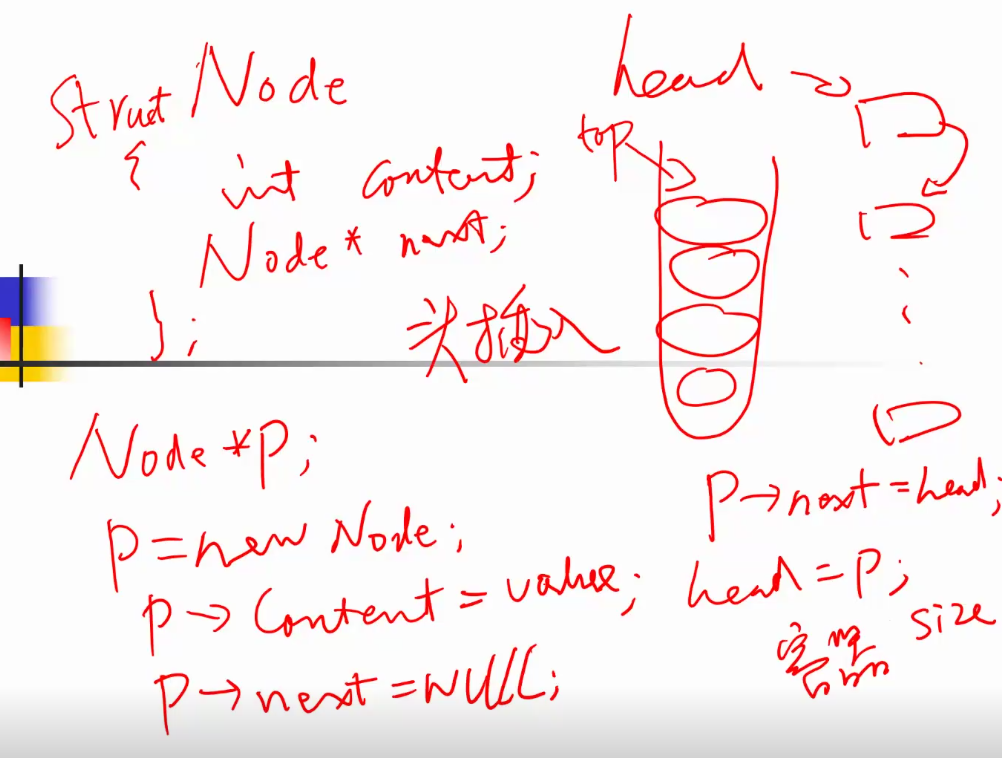 Struct Node
{
int content;
Node* next;
};
头插入
head
top
Node *p;
p=new Node;
p→Content=value;
p→next=NULL;
p→next=head;
head=p;
size